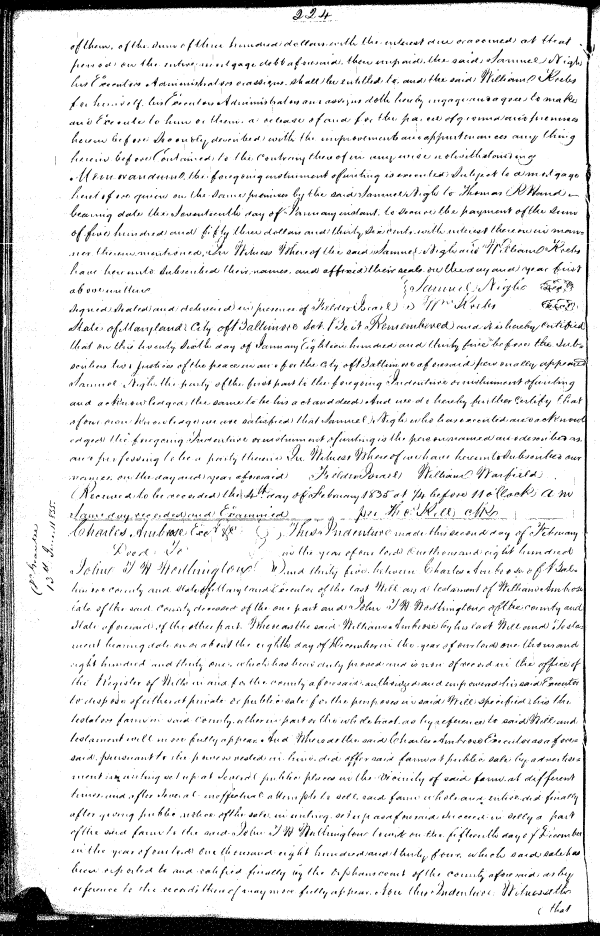 224
of them, of the sum of three hundred dollars with the interest due or accrued at that
period on the entire mortgage debt aforesaid then unpaid the said Samuel Nigh
his Executors Administrators or assigns shall be entitled to, and the said William Krebs
for himself, his Executors Administrators and assigns doth hereby engage and agree to make
and Execute to him or them, a release of and for the parcel of ground and premises
herein before Secondly described with the improvements and appurtenances any thing
herein before Contained to the contrary thereof in any wise notwithstanding
Memorandum, the foregoing instrument of writing is executed Subject to a mortgage
heretofore given on the same premises by the said Samuel Nigh to Thomas R Hand
bearing date the Seventeenth day of January instant, to secure the payment of the sum
of five hundred and fifty three dollars and thirty six cents, with interest thereon in man
ner therein mentioned, In Witness Whereof the said Samuel Nigh and William Krebs
have hereunto Subscribed their names, and affixed their seals on the day and year first
above written Samuel Nigh
Signed Sealed and delivered in presence of Fielder Israel Wm Krebs
State of Maryland City of Baltimore Sct. Be it Remembered and it is hereby Certified
that on this twenty Sixth day of January Eighteen hundred and thirty five before the Sub
scribers two justices of the peace in and for the City of Baltimore aforesaid personally appeared
Samuel Nigh the party of the first part to the foregoing Indenture or instrument of writing
and acknowledged the same to be his act and deed And we do hereby further Certify that
of our own knowledge we are satisfied that Samuel Nigh who has executed and acknowl
edged the foregoing Indenture or instrument of writing is the person named and described as
and professing to be a party thereto In Witness Whereof we have hereunto Subscribed our
names on the day and year aforesaid Fielder Israel William Warfield
Received to be recorded the 4th day of February 1835 at 1/4 before 11 o'Clock A M
Same day recorded and Examined per Thos Kell Clk
Charles Ambrose Exor &c This Indenture made this second day of February
Deed To in the year of our lord One thousand and eight hundred
John T H Worthington and thirty five between Charles Ambrose of Bal
timore county and State of Maryland Executor of the last Will and testament of William Ambrose
late of the said County deceased of the one part and John T H Worthington of the county and
State aforesaid, of the other part. Whereas the said William Ambrose by his last Will and Testa
ment bearing date on or about the eighth day of December in the year of our lord one thousand
eight hundred and thirty one, which has been duly proved and is now of record in the office of
the Register of Wills in and for the county aforesaid, authorized and empowered his said Executor
to dispose of either at private or public sale for the purposes in said Will specified, his the
testators farm in said County, either in part or the whole, as by reference to said Will and
testament will more fully appear. And Whereas the said Charles Ambrose Executor as afore
said, pursuant to the powers vested in him, did offer said farm at public sale by advertise
ment in writing set up at Several public places in the Vicinity of said farm, at different
times, and after Several ineffectual attempts to sell said farm whole and entire, did finally
after giving public notice of the sale, in writing set up as aforesaid, succeed in selling a part
of the said farm to the said John T H Worthington to wit on the fifteenth day of December
in the year of our lord one thousand eight hundred and thirty four, which said sale has
been reported to and ratified finally by the Orphans court of the county aforesaid, as by
reference to the records thereof may more fully appear. Now this Indenture Witnesseth
that